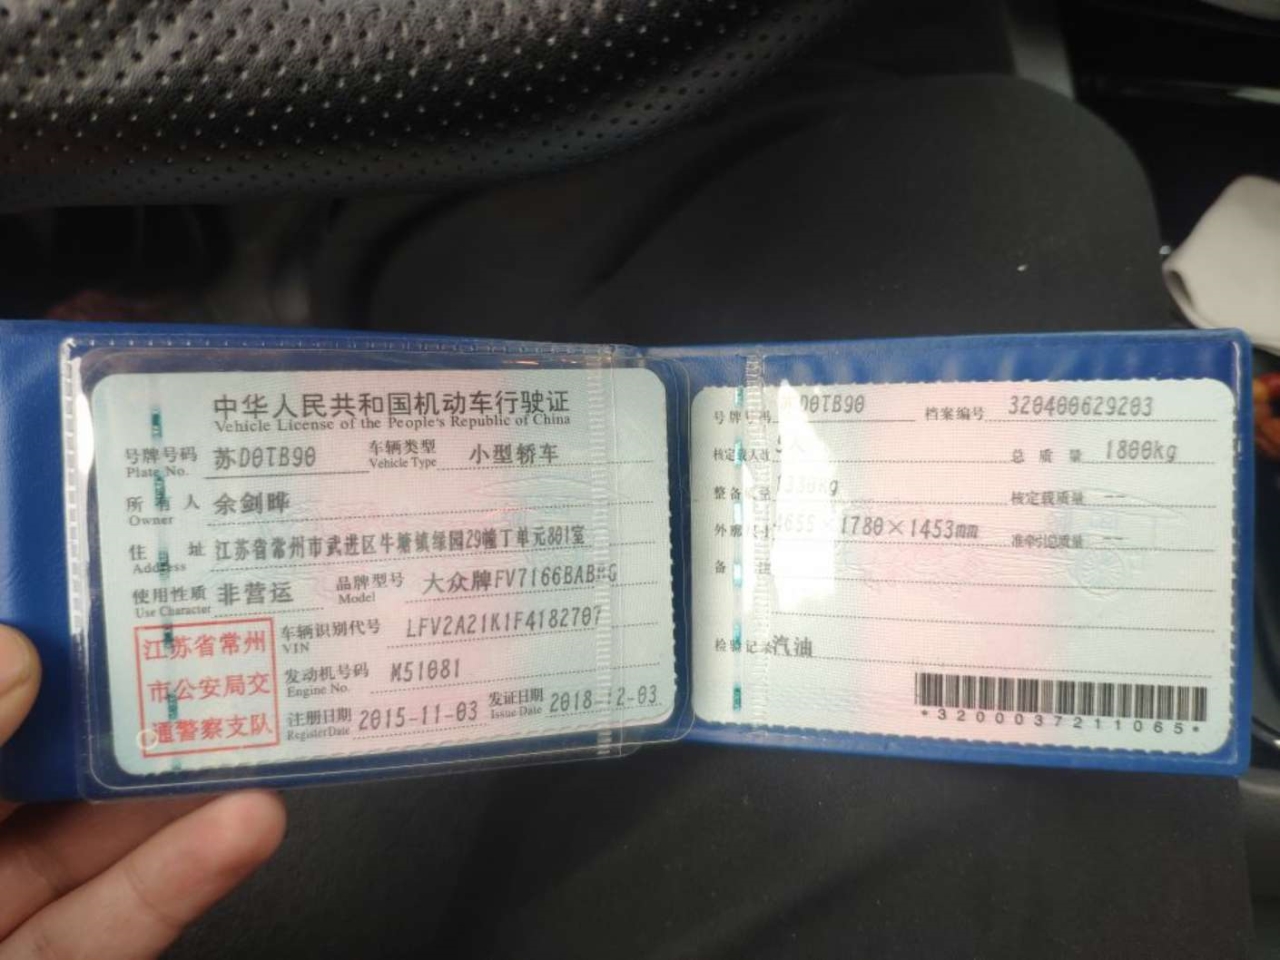 中华人民共和国机动车行驶证
Vehicle License of the People's Republic of China
号牌号码 苏D0TB90 车辆类型 小型轿车
Plate No. Vehicle Type
所有人 余剑晔
Owner
住址 江苏省常州市武进区牛塘镇绿园29幢丁单元801室
Address
使用性质 非营运 品牌型号 大众牌FV7166BAB
Use Character Model
车辆识别代号 LFV2A21K1F4182707
VIN
发动机号码 M51081
Engine No.
注册日期 2015-11-03 发证日期 2018-12-03
Register Date Issue Date
江苏省常州
市公安局交
通警察支队
号牌号码 D0TB90 档案编号 320400629203
核定载人数 5人 总质量 1800kg
整备质量 kg 核定载质量 --
外廓尺寸 4655×1780×1453mm 准牵引总质量 --
备注
检验记录 汽油
*3200037211065*